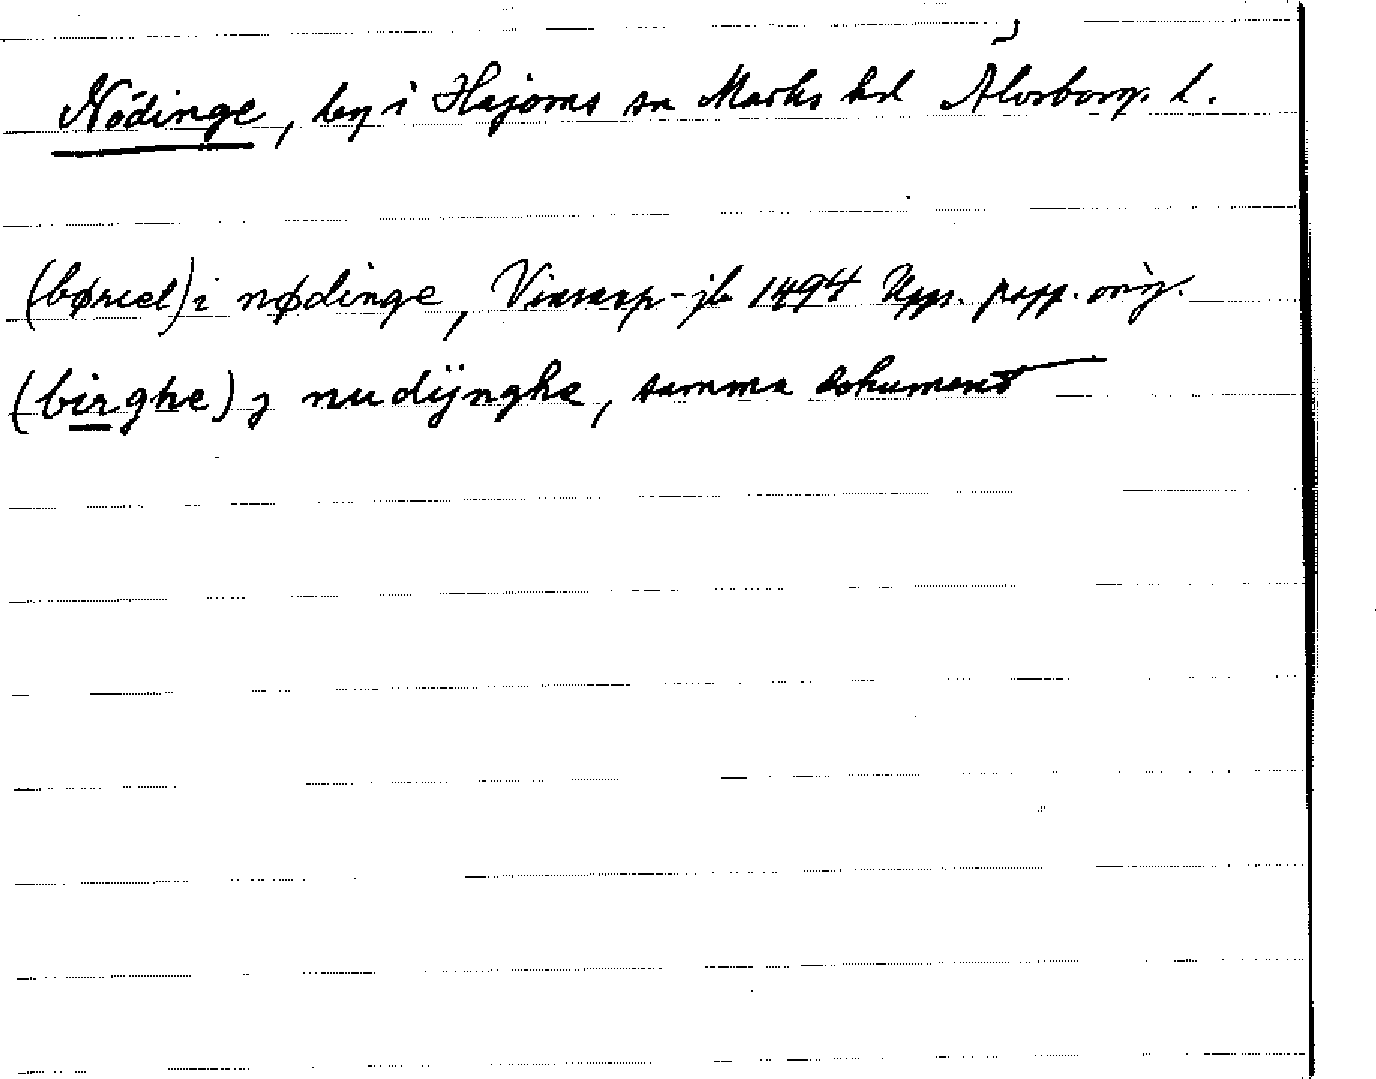 Nödinge, by i Hajoms sn Marks hd Älvsborgs l.
(børiel) i nødinge, Vinsarp-jb 1494 Upps. papp. orig.
(birghe) j nudÿnghe, samma dokument